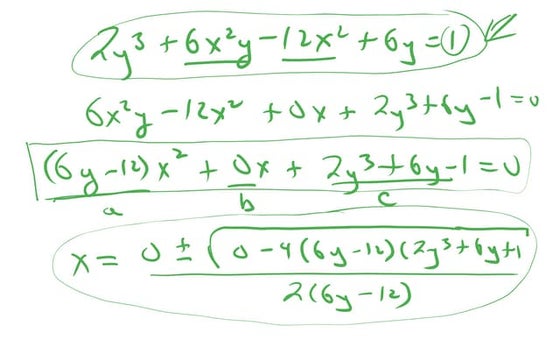 2y³ + 6x²y - 12x² + 6y = 1
6x²y - 12x² + 0x + 2y³ + 6y - 1 = 0
(6y - 12)x² + 0x + 2y³ + 6y - 1 = 0
a b c
x = 0 ± √(0 - 4(6y - 12)(2y³ + 6y + 1
2(6y - 12)